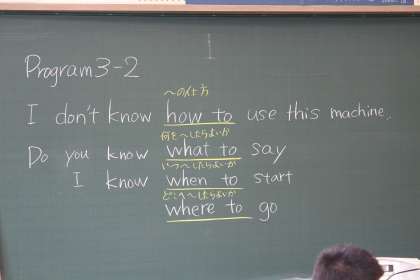 Program 3-2
〜の仕方
I don't know how to use this machine.
何を〜したらよいか
Do you know what to say
いつ〜したらよいか
I know when to start
どこへ〜したらよいか
where to go